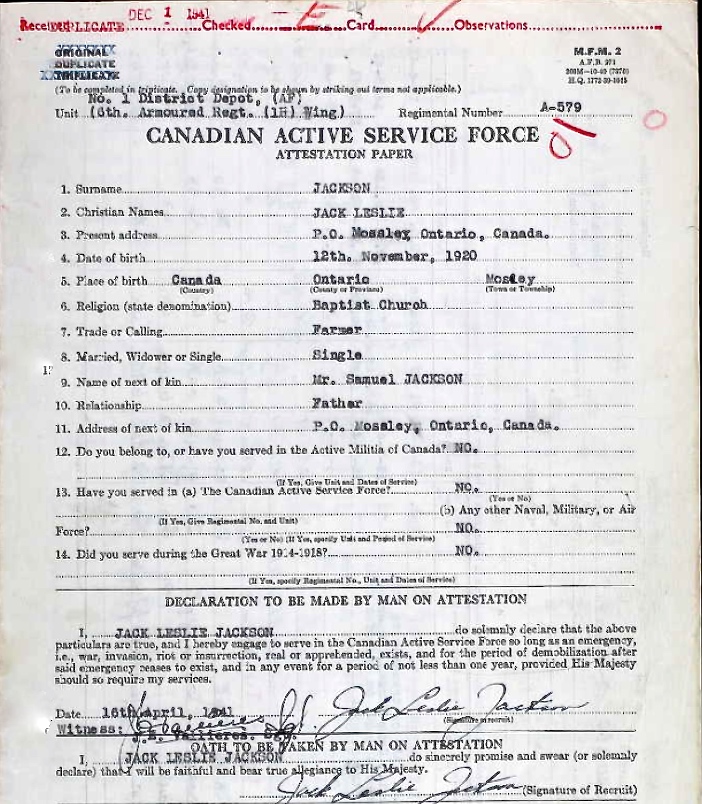 DEC 1 1941
Received DUPLICATE Checked Card Observations
ORIGINAL
DUPLICATE
TRIPLICATE
M.F.M. 2
A.F.B. 271
H.Q. 1772-39-1615
(To be completed in triplicate. Copy designation to be shown by striking out terms not applicable.)
No. 1 District Depot, (AF)
Unit (6th. Armoured Regt. (1H) Wing) Regimental Number A-579
CANADIAN ACTIVE SERVICE FORCE
ATTESTATION PAPER
1. Surname JACKSON
2. Christian Names JACK LESLIE
3. Present address P.O. Mossley Ontario, Canada.
4. Date of birth 12th. November, 1920
5. Place of birth Canada Ontario Mosley
(Country) (County or Province) (Town or Township)
6. Religion (state denomination) Baptist Church
7. Trade or Calling Farmer
8. Married, Widower or Single Single
9. Name of next of kin Mr. Samuel JACKSON
10. Relationship Father
11. Address of next of kin P.O. Mossley, Ontario, Canada.
12. Do you belong to, or have you served in the Active Militia of Canada? NO.
(If Yes, Give Unit and Dates of Service)
13. Have you served in (a) The Canadian Active Service Force? NO.
(Yes or No)
(b) Any other Naval, Military, or Air
(If Yes, Give Regimental No. and Unit)
Force? NO.
(Yes or No) (If Yes, specify Unit and Period of Service)
14. Did you serve during the Great War 1914-1918? NO.
(If Yes, specify Regimental No., Unit and Dates of Service)
DECLARATION TO BE MADE BY MAN ON ATTESTATION
I, JACK LESLIE JACKSON do solemnly declare that the above
particulars are true, and I hereby engage to serve in the Canadian Active Service Force so long as an emergency,
i.e., war, invasion, riot or insurrection, real or apprehended, exists, and for the period of demobilization after
said emergency ceases to exist, and in any event for a period of not less than one year, provided His Majesty
should so require my services.
Date 16th April, 1941 Jack Leslie Jackson
Witness: (Signature of recruit)
OATH TO BE TAKEN BY MAN ON ATTESTATION
I, JACK LESLIE JACKSON do sincerely promise and swear (or solemnly
declare) that I will be faithful and bear true allegiance to His Majesty.
Jack Leslie Jackson (Signature of Recruit)